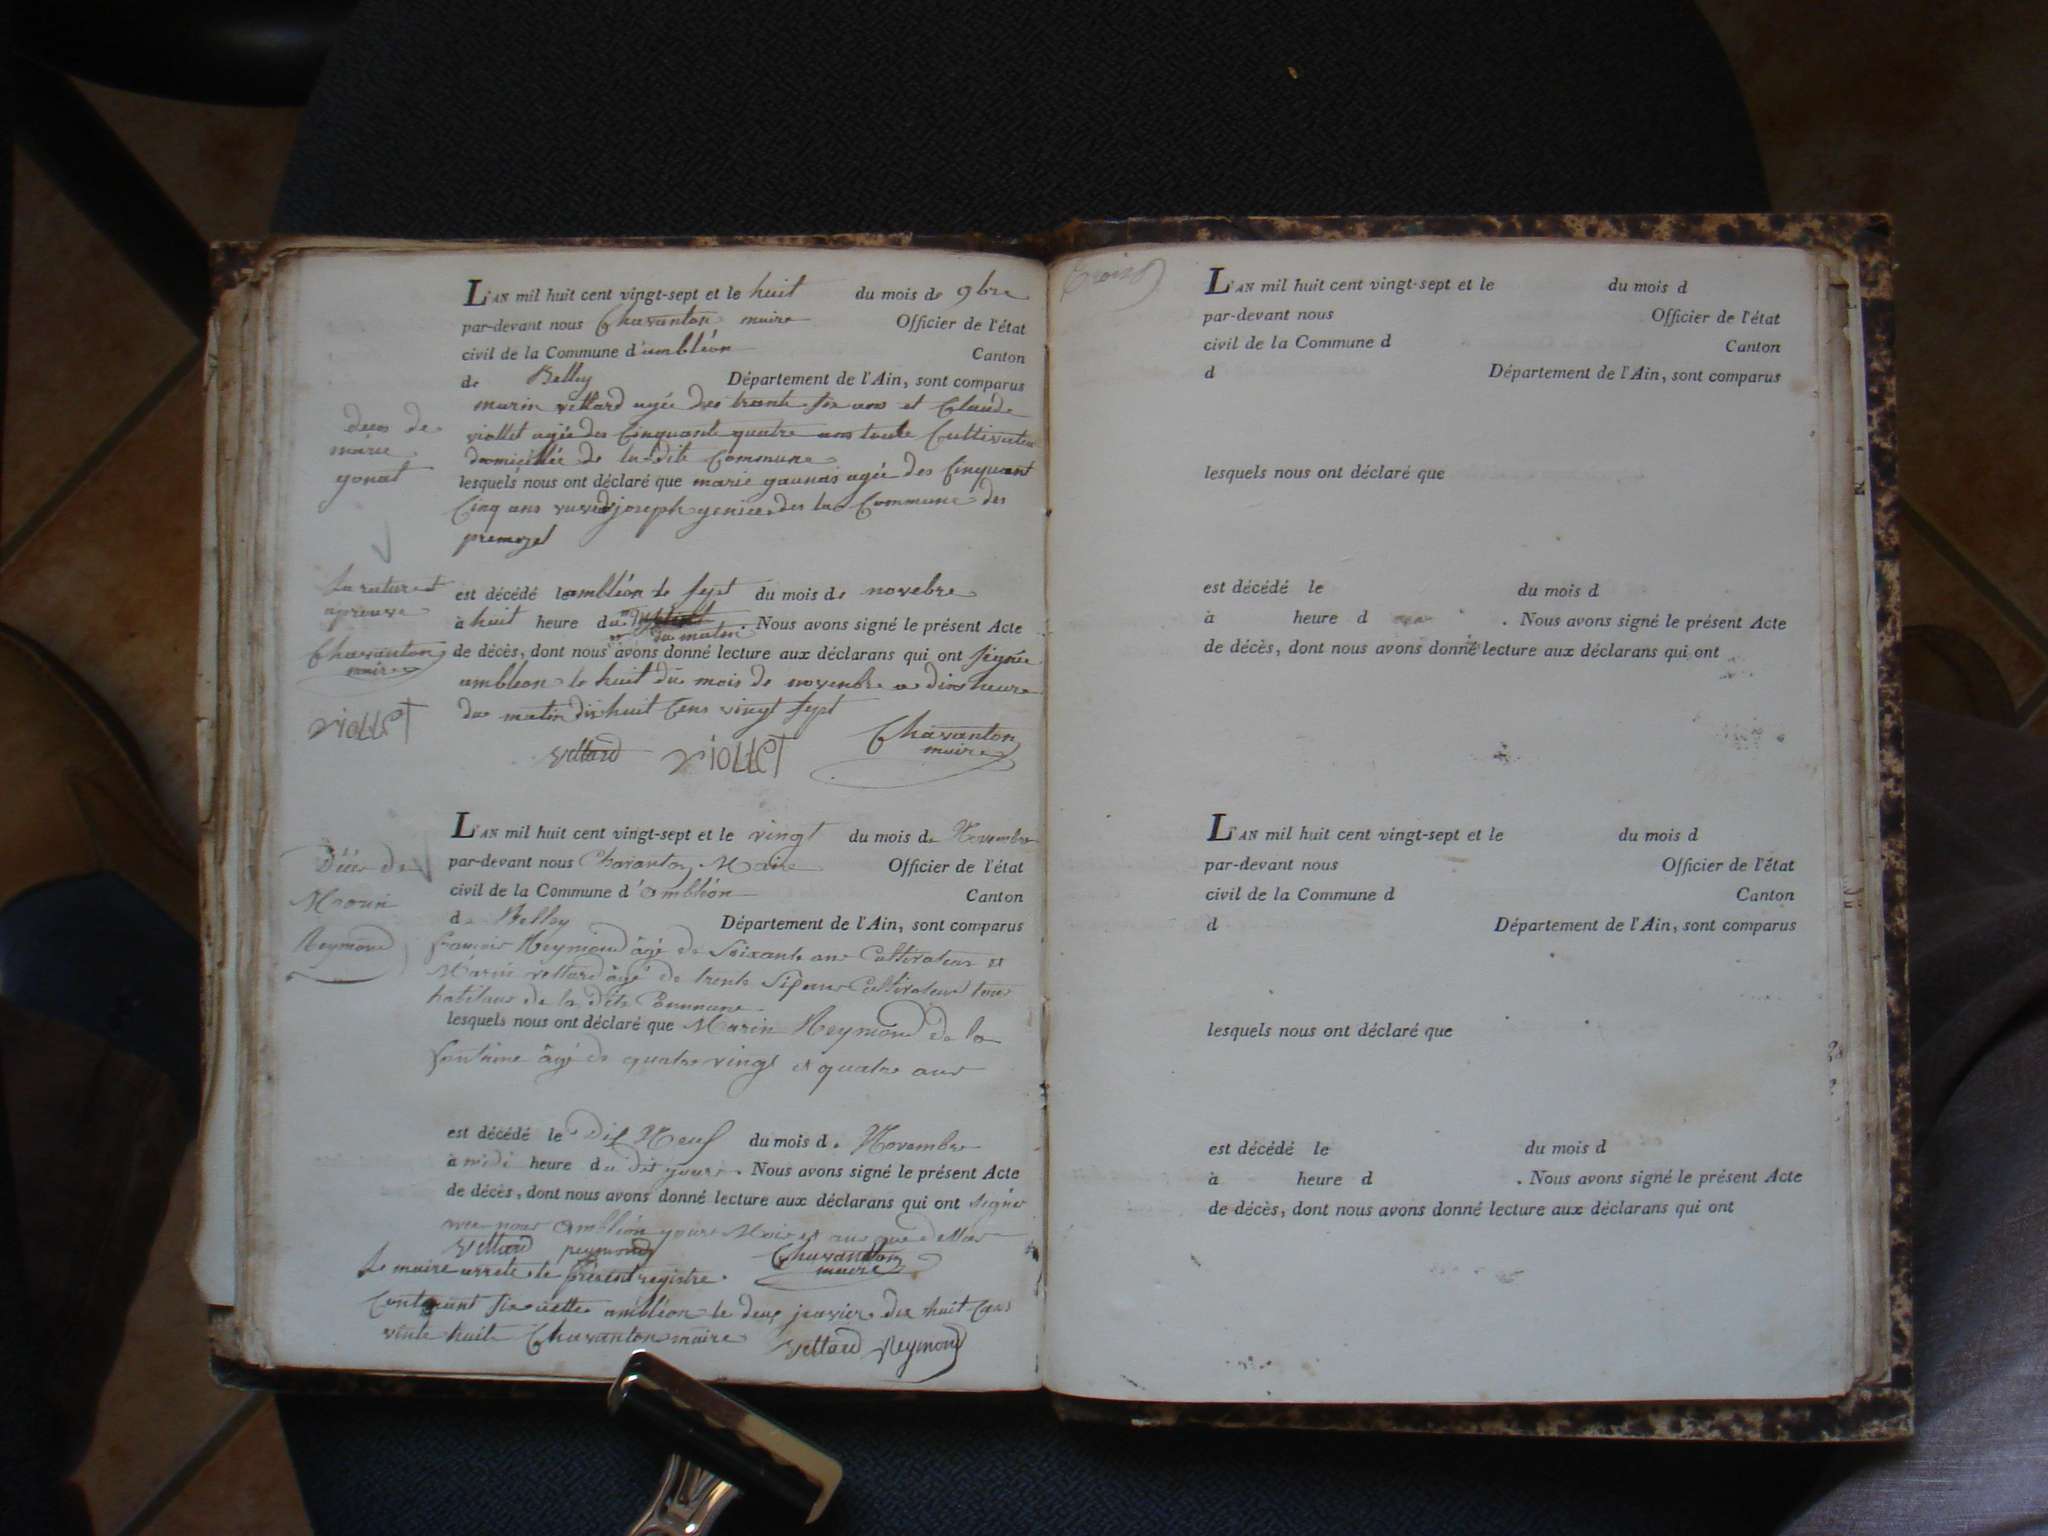 L'AN mil huit cent vingt-sept et le huit du mois de 9bre
par-devant nous Chavanton maire Officier de l'état
civil de la Commune d'ambléon Canton
de Belley Département de l'Ain, sont comparus
marin vettard agée des trante six ans et Claude
viollet agée des Cinquante quatre ans toute Cultivateu
domicillée de la dite Commune
deces de
marie
gonat
lesquels nous ont déclaré que marie gaunas agée des Cinquant
Cinq ans joseph des la Commune des
premezel
est décédé le ambléon le sept du mois de novebre
à huit heure du du matin. Nous avons signé le présent Acte
de décès, dont nous avons donné lecture aux déclarans qui ont signée
ambleon le huit du mois de novenbre a dix heure
du matin dixhuit Cens vingt sept
La rature et
apreuve
Chavanton
maire
viollet
vettard viollet Chavanton
maire
L'AN mil huit cent vingt-sept et le vingt du mois de Novembre
par-devant nous Chavanton Maire Officier de l'état
civil de la Commune d'Ambléon Canton
de Belley Département de l'Ain, sont comparus
Décès de
Marin
Reymond
francois Reymond âgé de Soixante ans Cultivateur et
Marin vettard âgé de trente Six ans Cultivateur tous
habitans de la dite Commune
lesquels nous ont déclaré que Marin Reymond de la
fontaine âgé de quatre vingt et quatre ans
est décédé le Dix Neuf du mois de Novembre
à midi heure du dit jours. Nous avons signé le présent Acte
de décès, dont nous avons donné lecture aux déclarans qui ont signés
avec nous Ambléon jours Mois et ans que dessus
vettard reymond Chavanton
maire
Le maire arrete le present registre
Contenant six ambléon le deux janvier dix huit Cens
vinte huite Chavanton maire vettard Reymond
L'AN mil huit cent vingt-sept et le du mois d
par-devant nous Officier de l'état
civil de la Commune d Canton
d Département de l'Ain, sont comparus
lesquels nous ont déclaré que
est décédé le du mois d
à heure d . Nous avons signé le présent Acte
de décès, dont nous avons donné lecture aux déclarans qui ont
L'AN mil huit cent vingt-sept et le du mois d
par-devant nous Officier de l'état
civil de la Commune d Canton
d Département de l'Ain, sont comparus
lesquels nous ont déclaré que
est décédé le du mois d
à heure d . Nous avons signé le présent Acte
de décès, dont nous avons donné lecture aux déclarans qui ont